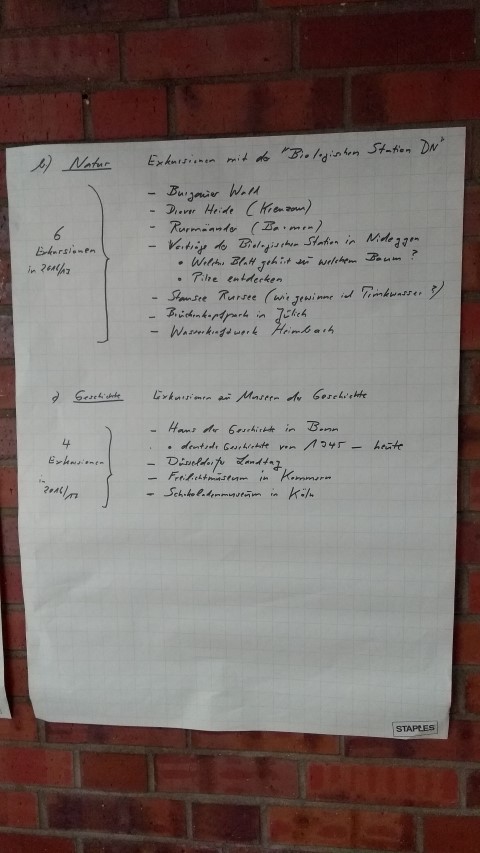 b) Natur Exkursionen mit der "Biologischen Station DN"
6 Exkursionen in 2016/17
- Burgauer Wald
- Drover Heide (Kreuzau)
- Rurmäander (Barmen)
- Vorträge der Biologischen Station in Nideggen
• Welches Blatt gehört zu welchem Baum?
• Pilze entdecken
- Stausee Rursee (wie gewinne ich Trinkwasser?)
- Brückenkopfpark in Jülich
- Wasserkraftwerk Heimbach
c) Geschichte Exkursionen zu Museen der Geschichte
4 Exkursionen in 2016/17
- Haus der Geschichte in Bonn
• deutsche Geschichte von 1945 - heute
- Düsseldorfer Landtag
- Freilichtmuseum in Kommern
- Schokoladenmuseum in Köln
STAPLES